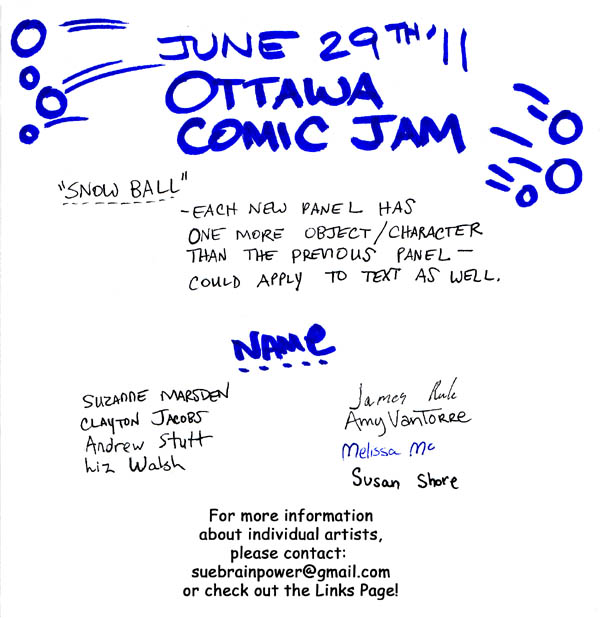 JUNE 29TH '11
OTTAWA
COMIC JAM
"SNOW BALL"
- EACH NEW PANEL HAS
ONE MORE OBJECT/CHARACTER
THAN THE PREVIOUS PANEL -
COULD APPLY TO TEXT AS WELL.
NAME
SUZANNE MARSDEN
CLAYTON JACOBS
Andrew Stutt
Liz Walsh
James Rule
Amy VanTorre
Melissa Mc
Susan Shore
For more information
about individual artists,
please contact:
suebrainpower@gmail.com
or check out the Links Page!